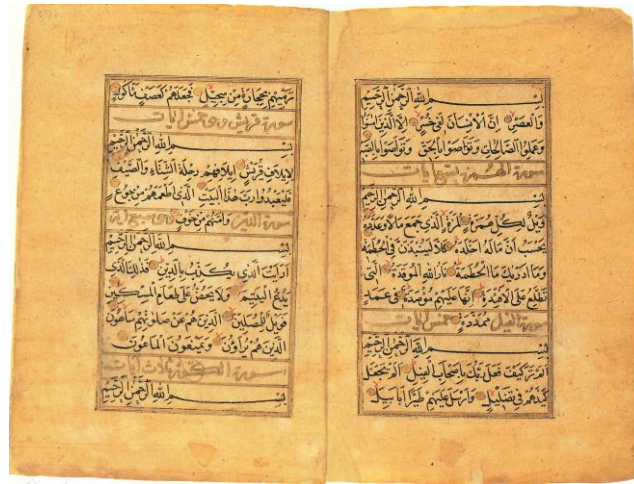 بِسْمِ اللهِ الرَّحْمٰنِ الرَّحِيْمِ
وَالْعَصْرِ اِنَّ الْاِنْسَانَ لَفِى خُسْرٍ اِلَّا الَّذِيْنَ اٰمَنُوا
وَعَمِلُوا الصَّالِحَاتِ وَتَوَاصَوْا بِالْحَقِّ وَتَوَاصَوْا بِالصَّبْرِ
سورة الهمزة تسع ايات
بِسْمِ اللهِ الرَّحْمٰنِ الرَّحِيْمِ
وَيْلٌ لِكُلِّ هُمَزَةٍ لُمَزَةٍ اَلَّذِى جَمَعَ مَالًا وَعَدَّدَهُ
يَحْسَبُ اَنَّ مَالَهُ اَخْلَدَهُ كَلَّا لَيُنْبَذَنَّ فِى الْحُطَمَةِ
وَمَا اَدْرٰيكَ مَا الْحُطَمَةُ نَارُ اللهِ الْمُوقَدَةُ الَّتِى
تَطَّلِعُ عَلَى الْاَفْئِدَةِ اِنَّهَا عَلَيْهِمْ مُؤْصَدَةٌ فِى عَمَدٍ
مُمَدَّدَةٍ سورة الفيل خمس ايات
بِسْمِ اللهِ الرَّحْمٰنِ الرَّحِيْمِ
اَلَمْ تَرَ كَيْفَ فَعَلَ رَبُّكَ بِاَصْحَابِ الْفِيْلِ اَلَمْ يَجْعَلْ
كَيْدَهُمْ فِى تَضْلِيْلٍ وَاَرْسَلَ عَلَيْهِمْ طَيْرًا اَبَابِيْلَ
تَرْمِيْهِمْ بِحِجَارَةٍ مِنْ سِجِّيْلٍ فَجَعَلَهُمْ كَعَصْفٍ مَاْكُولٍ
سورة قريش وهى خمس ايات
بِسْمِ اللهِ الرَّحْمٰنِ الرَّحِيْمِ
لِاِيلَافِ قُرَيْشٍ اِيلَافِهِمْ رِحْلَةَ الشِّتَاءِ وَالصَّيْفِ
فَلْيَعْبُدُوا رَبَّ هٰذَا الْبَيْتِ الَّذِى اَطْعَمَهُمْ مِنْ جُوعٍ
وَاٰمَنَهُمْ مِنْ خَوْفٍ سورة الدين وهى سبع اية
بِسْمِ اللهِ الرَّحْمٰنِ الرَّحِيْمِ
اَرَاَيْتَ الَّذِى يُكَذِّبُ بِالدِّيْنِ فَذٰلِكَ الَّذِى
يَدُعُّ الْيَتِيْمَ وَلَا يَحُضُّ عَلَى طَعَامِ الْمِسْكِيْنِ
فَوَيْلٌ لِلْمُصَلِّيْنَ الَّذِيْنَ هُمْ عَنْ صَلٰوتِهِمْ سَاهُونَ
الَّذِيْنَ هُمْ يُرَاؤُنَ وَيَمْنَعُونَ الْمَاعُونَ
سورة الكوثر ثلاث ايات
بِسْمِ اللهِ الرَّحْمٰنِ الرَّحِيْمِ